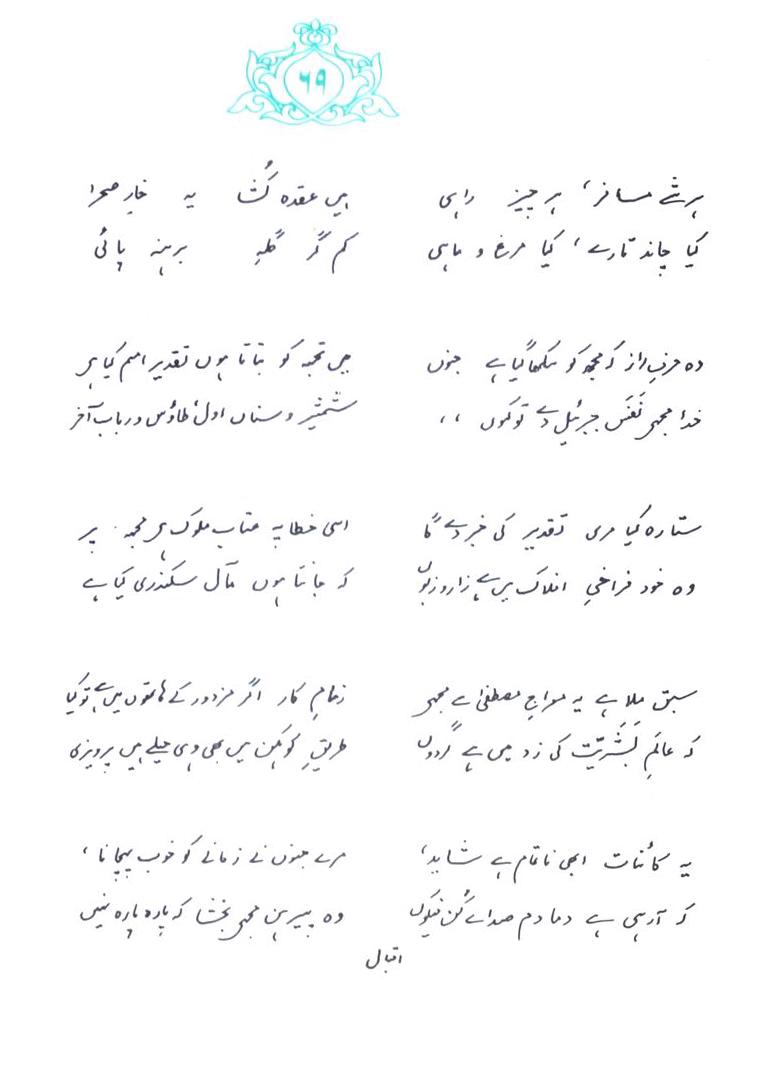 ۶۹
ہر شے مسافر، ہر چیز راہی
کیا چاند تارے، کیا مرغ و ماہی
ہیں عقدہ کُشا یہ خارِ صحرا
کم کر گلہِ برہنہ پائی
وہ حرفِ راز کہ مجھ کو سکھا گیا ہے جنوں
خدا مجھے نَفَسِ جبرئیل دے تو کہوں ،،
میں تجھ کو بتاتا ہوں تقدیرِ امم کیا ہے
شمشیر و سناں اول، طاؤس و رباب آخر
ستارہ کیا مری تقدیر کی خبر دے گا
وہ خود فراخیِ افلاک میں ہے زار و زبوں
اسی خطا پہ عتابِ ملوک ہے مجھ پر
کہ جانتا ہوں مآلِ سکندری کیا ہے
سبق ملا ہے یہ معراجِ مصطفیٰ سے مجھے
کہ عالَمِ بَشَرِیَّت کی زد میں ہے گردوں
زمامِ کار اگر مزدور کے ہاتھوں میں ہے تو کیا
طریقِ کوہکن میں بھی وہی حیلے ہیں پرویزی
یہ کائنات ابھی ناتمام ہے شاید،
کہ آرہی ہے دمادم صدائے کُن فیکوں
مرے جنوں نے زمانے کو خوب پہچانا،
وہ پیرہن مجھے بخشا کہ پارہ پارہ نہیں
اقبال